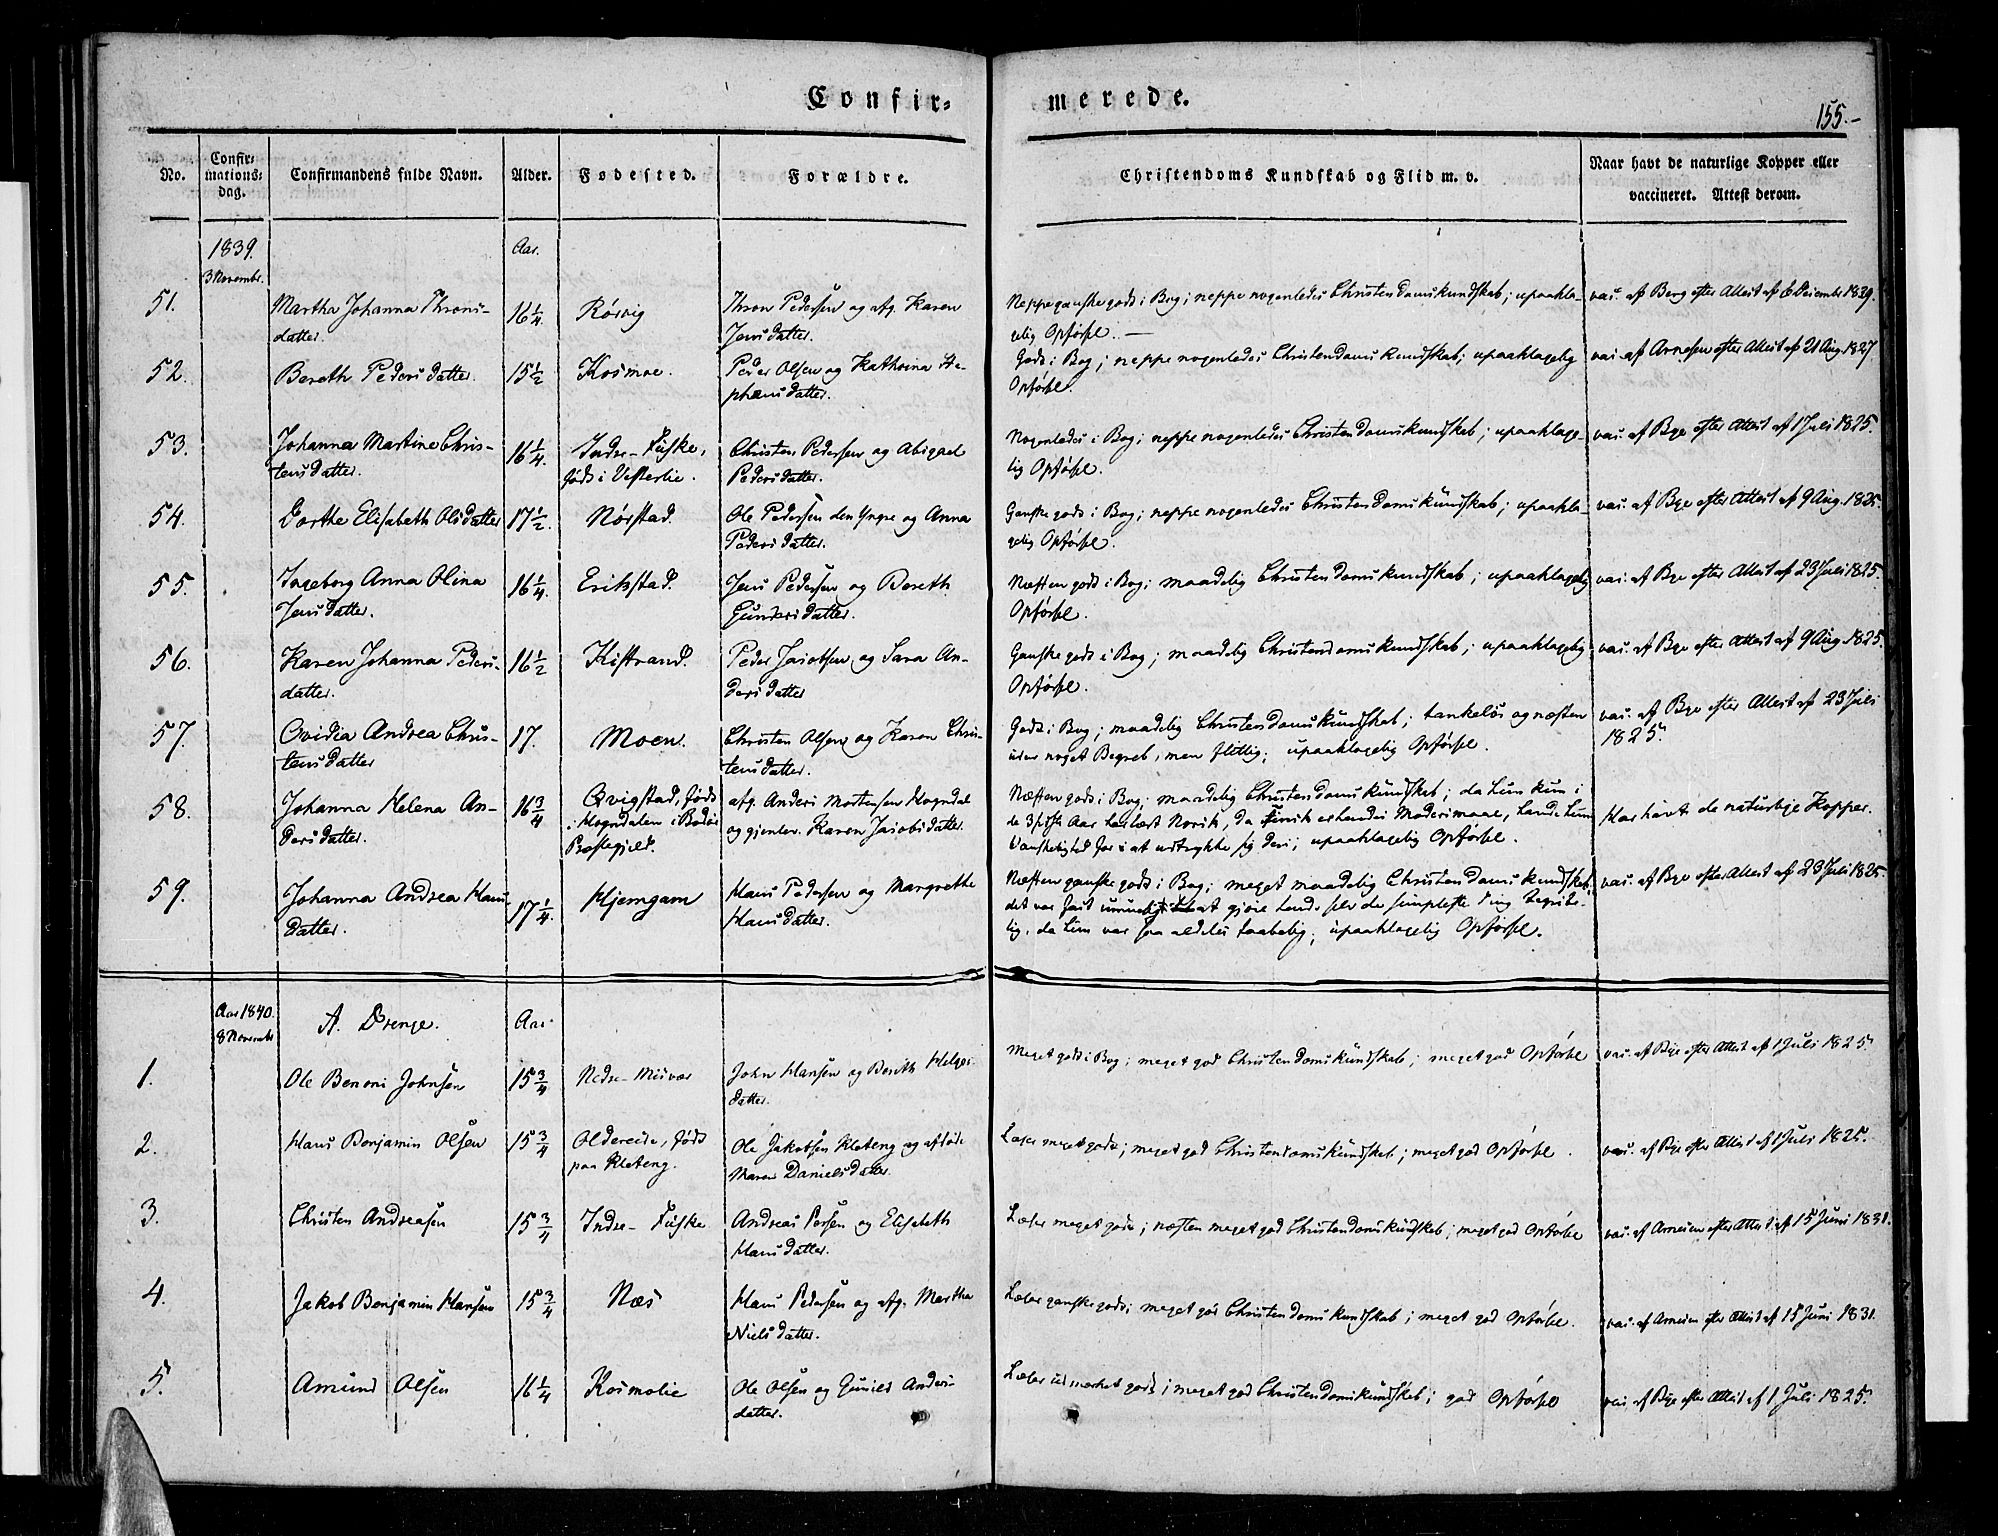 Confir-
merede.
155.-
No.
Confir-
mations-
dag.
Confirmandens fulde Navn.
Alder.
Fødested.
Forældre.
Christendoms Kundskab og Flid m. v.
Naar havt de naturlige Kopper eller
vaccineret. Attest derom.
1839.
3 Novembr.
Aar.
51.
Martha Johanna Throns-
datter.
16 1/4
Rørvig
Thron Pedersen og afg. Karen
Jensdatter.
Neppe ganske godt i Bog; neppe nogenledes Christendomskundskab; upaakla-
gelig Opførsel. —
vac. af Berg efter Attest af 6 Decembr 1829.
52.
Bereth Pedersdatter.
15 1/2
Kosmoe.
Peder Olsen og Kathrina Ste-
phensdatter.
Godt i Bog; neppe nogenledes Christendomskundskab; upaaklagelig
Opførsel.
vac. af Arnesen efter Attest af 21 Aug. 1827
53.
Johanna Martine Chris-
tensdatter.
16 1/4.
Indre-Fuske,
født i Vesterlie.
Christen Pedersen og Abigael
Pedersdatter.
Nogenledes i Bog; neppe nogenledes Christendomskundskab; upaaklage-
lig Opførsel.
vac. af Bye efter Attest af 1 Juli 1825.
54.
Dorthe Elisabeth Olsdatter
17 1/2.
Nørstad.
Ole Pedersen den Yngre og Anna
Pedersdatter.
Ganske godt i Bog; neppe nogenledes Christendomskundskab; upaakla-
gelig Opførsel.
vac. af Bye efter Attest af 9 Aug. 1825.
55.
Ingeborg Anna Olina
Jensdatter.
16 1/4.
Erikstad.
Jens Pedersen og Bereth
Gundersdatter.
Næsten godt i Bog; maadelig Christendomskundskab; upaaklagelig
Opførsel.
vac. af Bye efter Attest af 23 Juli 1825.
56.
Karen Johanna Peders-
datter.
16 1/2
Kistrand.
Peder Jacobsen og Sara An-
dersdatter
Ganske godt i Bog; maadelig Christendomskundskab; upaaklagelig
Opførsel.
vac. af Bye efter Attest af 9 Aug. 1825.
57.
Ovidia Andrea Chris-
tensdatter
17.
Moen.
Christen Olsen og Karen Chris-
tensdatter.
Godt i Bog; maadelig Christendomskundskab; tankeløs og næsten
uden noget Begreb, men flittig; upaaklagelig Opførsel.
vac. af Bye efter Attest af 23 Juli
1825.
58.
Johanna Helena An-
dersdatter.
16 3/4
Qvigstad, født
i Mogndalen i Bodøe
Præstegjeld.
afg. Anders Mortensen Mogndal
og gjenlev. Karen Jacobsdatter.
Næsten godt i Bog; maadelig Christendomskundskab; da hun kun i
de 3 sidste Aar har læst Norsk, da Finsk er hendes Modersmaal, havde hun
Vanskelighed for at udtrykke sig deri; upaaklagelig Opførsel.
Har havt de naturlige Kopper.
59.
Johanna Andrea Hans-
datter.
17 1/4.
Hjemgam
Hans Pedersen og Margrethe
Hansdatter.
Næsten ganske godt i Bog; meget maadelig Christendomskundskab,
det var fast umueligt at gjøre hende selv de simpleste Ting begribe-
lig, da hun var saa aldeles taabelig; upaaklagelig Opførsel.
vac. af Bye efter Attest af 23 Juli 1825.
Aar 1840.
8 Novembr
A. Drenge.
Aar.
1.
Ole Benoni Johnsen
15 3/4
Nedre-Misvær
John Hansen og Bereth Helges-
datter.
Meget godt i Bog; meget god Christendomskundskab; meget god Opførsel
vac. af Bye efter Attest af 1 Juli 1825.
2.
Hans Benjamin Olsen
15 3/4
Oldereide, født
paa Kleteng.
Ole Jakobsen Kleteng og afdøde
Maren Danielsdatter.
Læser meget godt; meget god Christendomskundskab; meget god Opførsel.
vac. af Bye efter Attest af 1 Juli 1825.
3.
Christen Andreasen
15 3/4
Indre-Fuske
Andreas Persen og Elisabeth
Hansdatter.
Læser meget godt; næsten meget god Christendomskundskab; meget god Opførsel
vac. af Arnesen efter Attest af 15 Juni 1831.
4.
Jakob Benjamin Hansen
15 3/4
Næs
Hans Pedersen og afg. Martha
Nielsdatter.
Læser ganske godt; meget god Christendomskundskab; meget god Opførsel.
vac. af Arnesen efter Attest af 15 Juni 1831.
5.
Amund Olsen
16 1/4
Kosmolie
Ole Olsen og Gunild Anders-
datter.
Læser udmærket godt; meget god Christendomskundskab; god Opførsel
vac. af Bye efter Attest af 1 Juli 1825.